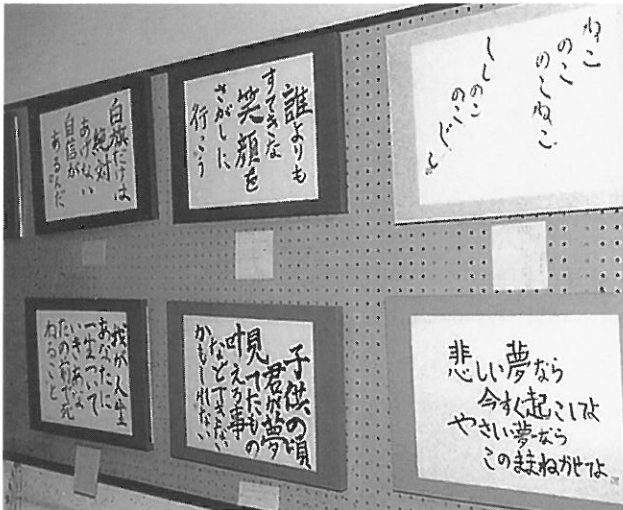 白旗だけは
絶対
あげない
自信が
あるんだ
誰よりも
すてきな
笑顔を
さがしに
行こう
ねこ
のこ
のこねこ
ししのこ
のこじし
我が人生
あなたに
一生ついて
いきあな
たの前で死
ねること
子供の頃
君が夢
見てたもの
叶える事
などできない
かもしれない
悲しい夢なら
今すぐ起こしてよ
やさしい夢なら
このままねかせてよ